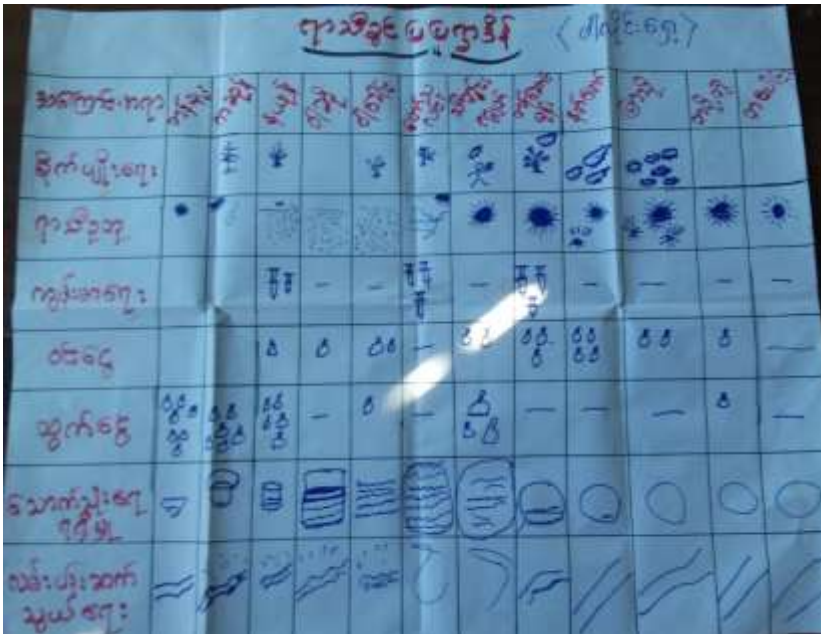 ရာသီခွင်ပြပြက္ခဒိန်
အကြောင်းအရာ တန်ခူး ကဆုန် နယုန် ဝါဆို ဝါခေါင် တော်သလင်း သီတင်းကျွတ် တန်ဆောင်မုန်း နတ်တော် ပြာသို တပို့တွဲ တပေါင်း
စိုက်ပျိုးရေး
ရာသီဥတု
ကျန်းမာရေး
ဝင်ငွေ
ထွက်ငွေ
သောက်သုံးရေ
ရရှိမှု
လမ်းပန်းဆက်
သွယ်ရေး